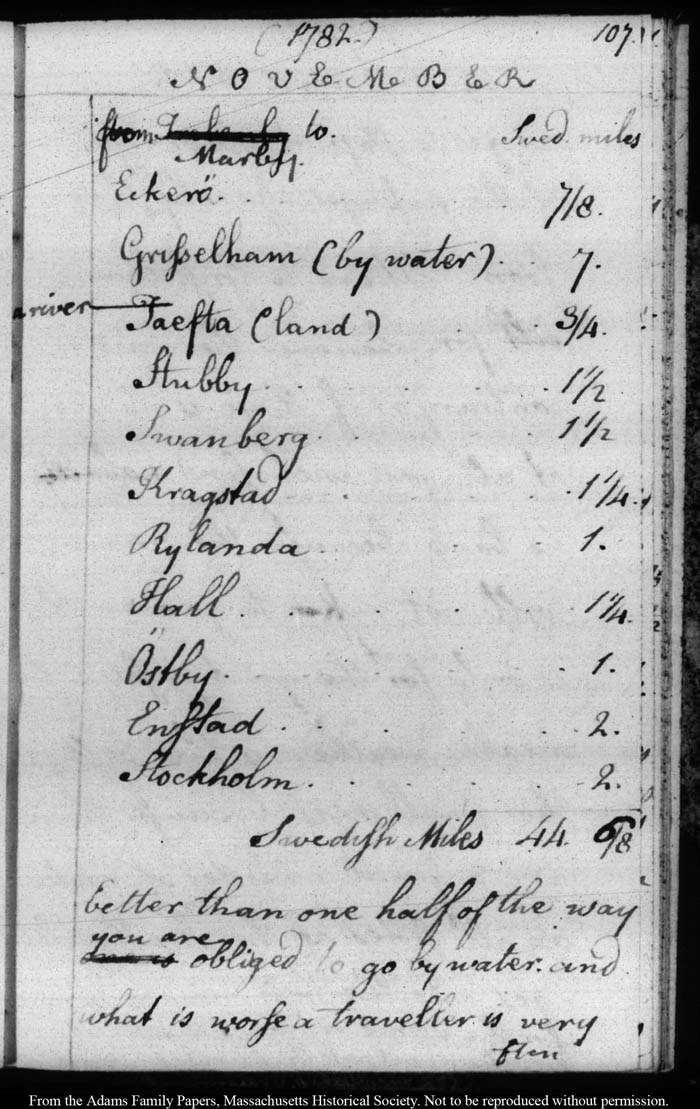 (1782.) 107.
NOVEMBER
from to. Swed. miles
Marby.
Eckerö. 7/8.
Grisselham (by water). 7.
a river
Taefta (land) 3/4.
Stubby. 1 1/2
Swanberg. 1 1/2
Kragstad 1 1/4.
Rylanda 1.
Hall. 1 1/4.
Östby. 1.
Enstad 2.
Stockholm. 2.
Swedish Miles 44. 6/8
better than one half of the way
you are
obliged to go by water. and
what is worse a traveller is very
From the Adams Family Papers, Massachusetts Historical Society. Not to be reproduced without permission.